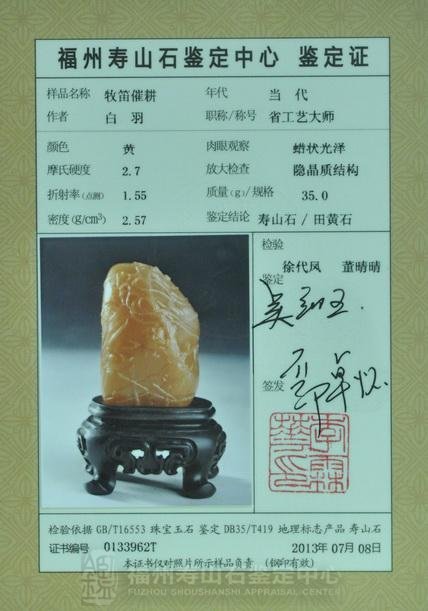 福州寿山石鉴定中心 鉴定证
样品名称 牧笛催耕 年代 当代
作者 白羽 职称/称号 省工艺大师
颜色 黄 肉眼观察 蜡状光泽
摩氏硬度 2.7 放大检查 隐晶质结构
折射率(点测) 1.55 质量(g)/规格 35.0
密度(g/cm³) 2.57 鉴定结论 寿山石/田黄石
检验
徐代凤 董晴晴
鉴定
签发
检验依据 GB/T16553 珠宝玉石 鉴定 DB35/T419 地理标志产品 寿山石
证书编号 0133962T 2013年07月08日
本证书仅对照片所示样品负责 (钢印有效)
福州寿山石鉴定中心
FUZHOU SHOUSHANSHI APPRAISAL CENTER